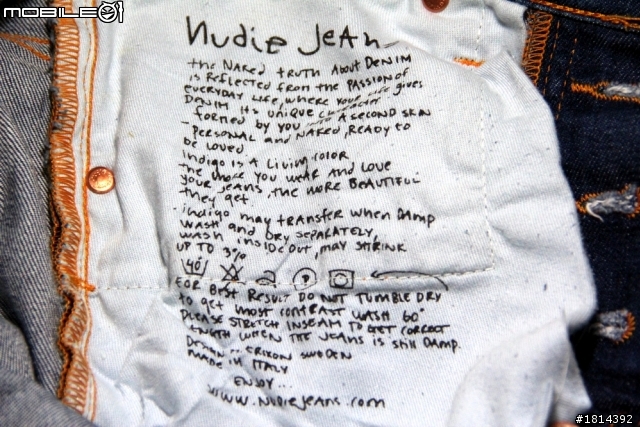 MOBILE01
Nudie Jean
the NAKED truth About DENIM
is REFLECTED FROM the PASSION OF
EVERYDAY LIFE, WHERE your gives
DENIM its UNIQUE CHARACTER
formed by you A SECOND SKIN
PERSONAL AND NAKED, READY to
be LOVED
Indigo is A Living COLOR
the MORE you WEAR AND LOVE
your JEANS, the MORE BEAUTIFUL
they get.
indigo may transfer when DAMP
WASH and DRY SEPARATELY,
WASH inside out, MAY SHRINK
UP to 3%
40
FOR BEST RESULT DO NOT TUMBLE DRY
to get MOST CONTRAST WASH 60°
PLEASE STRETCH INSEAM to GET CORRECT
LENGTH WHEN THE JEANS is still DAMP.
ERIXON SWEDEN
MADE in ITALY
ENJOY...
WWW.NudieJeans.com
#1814392